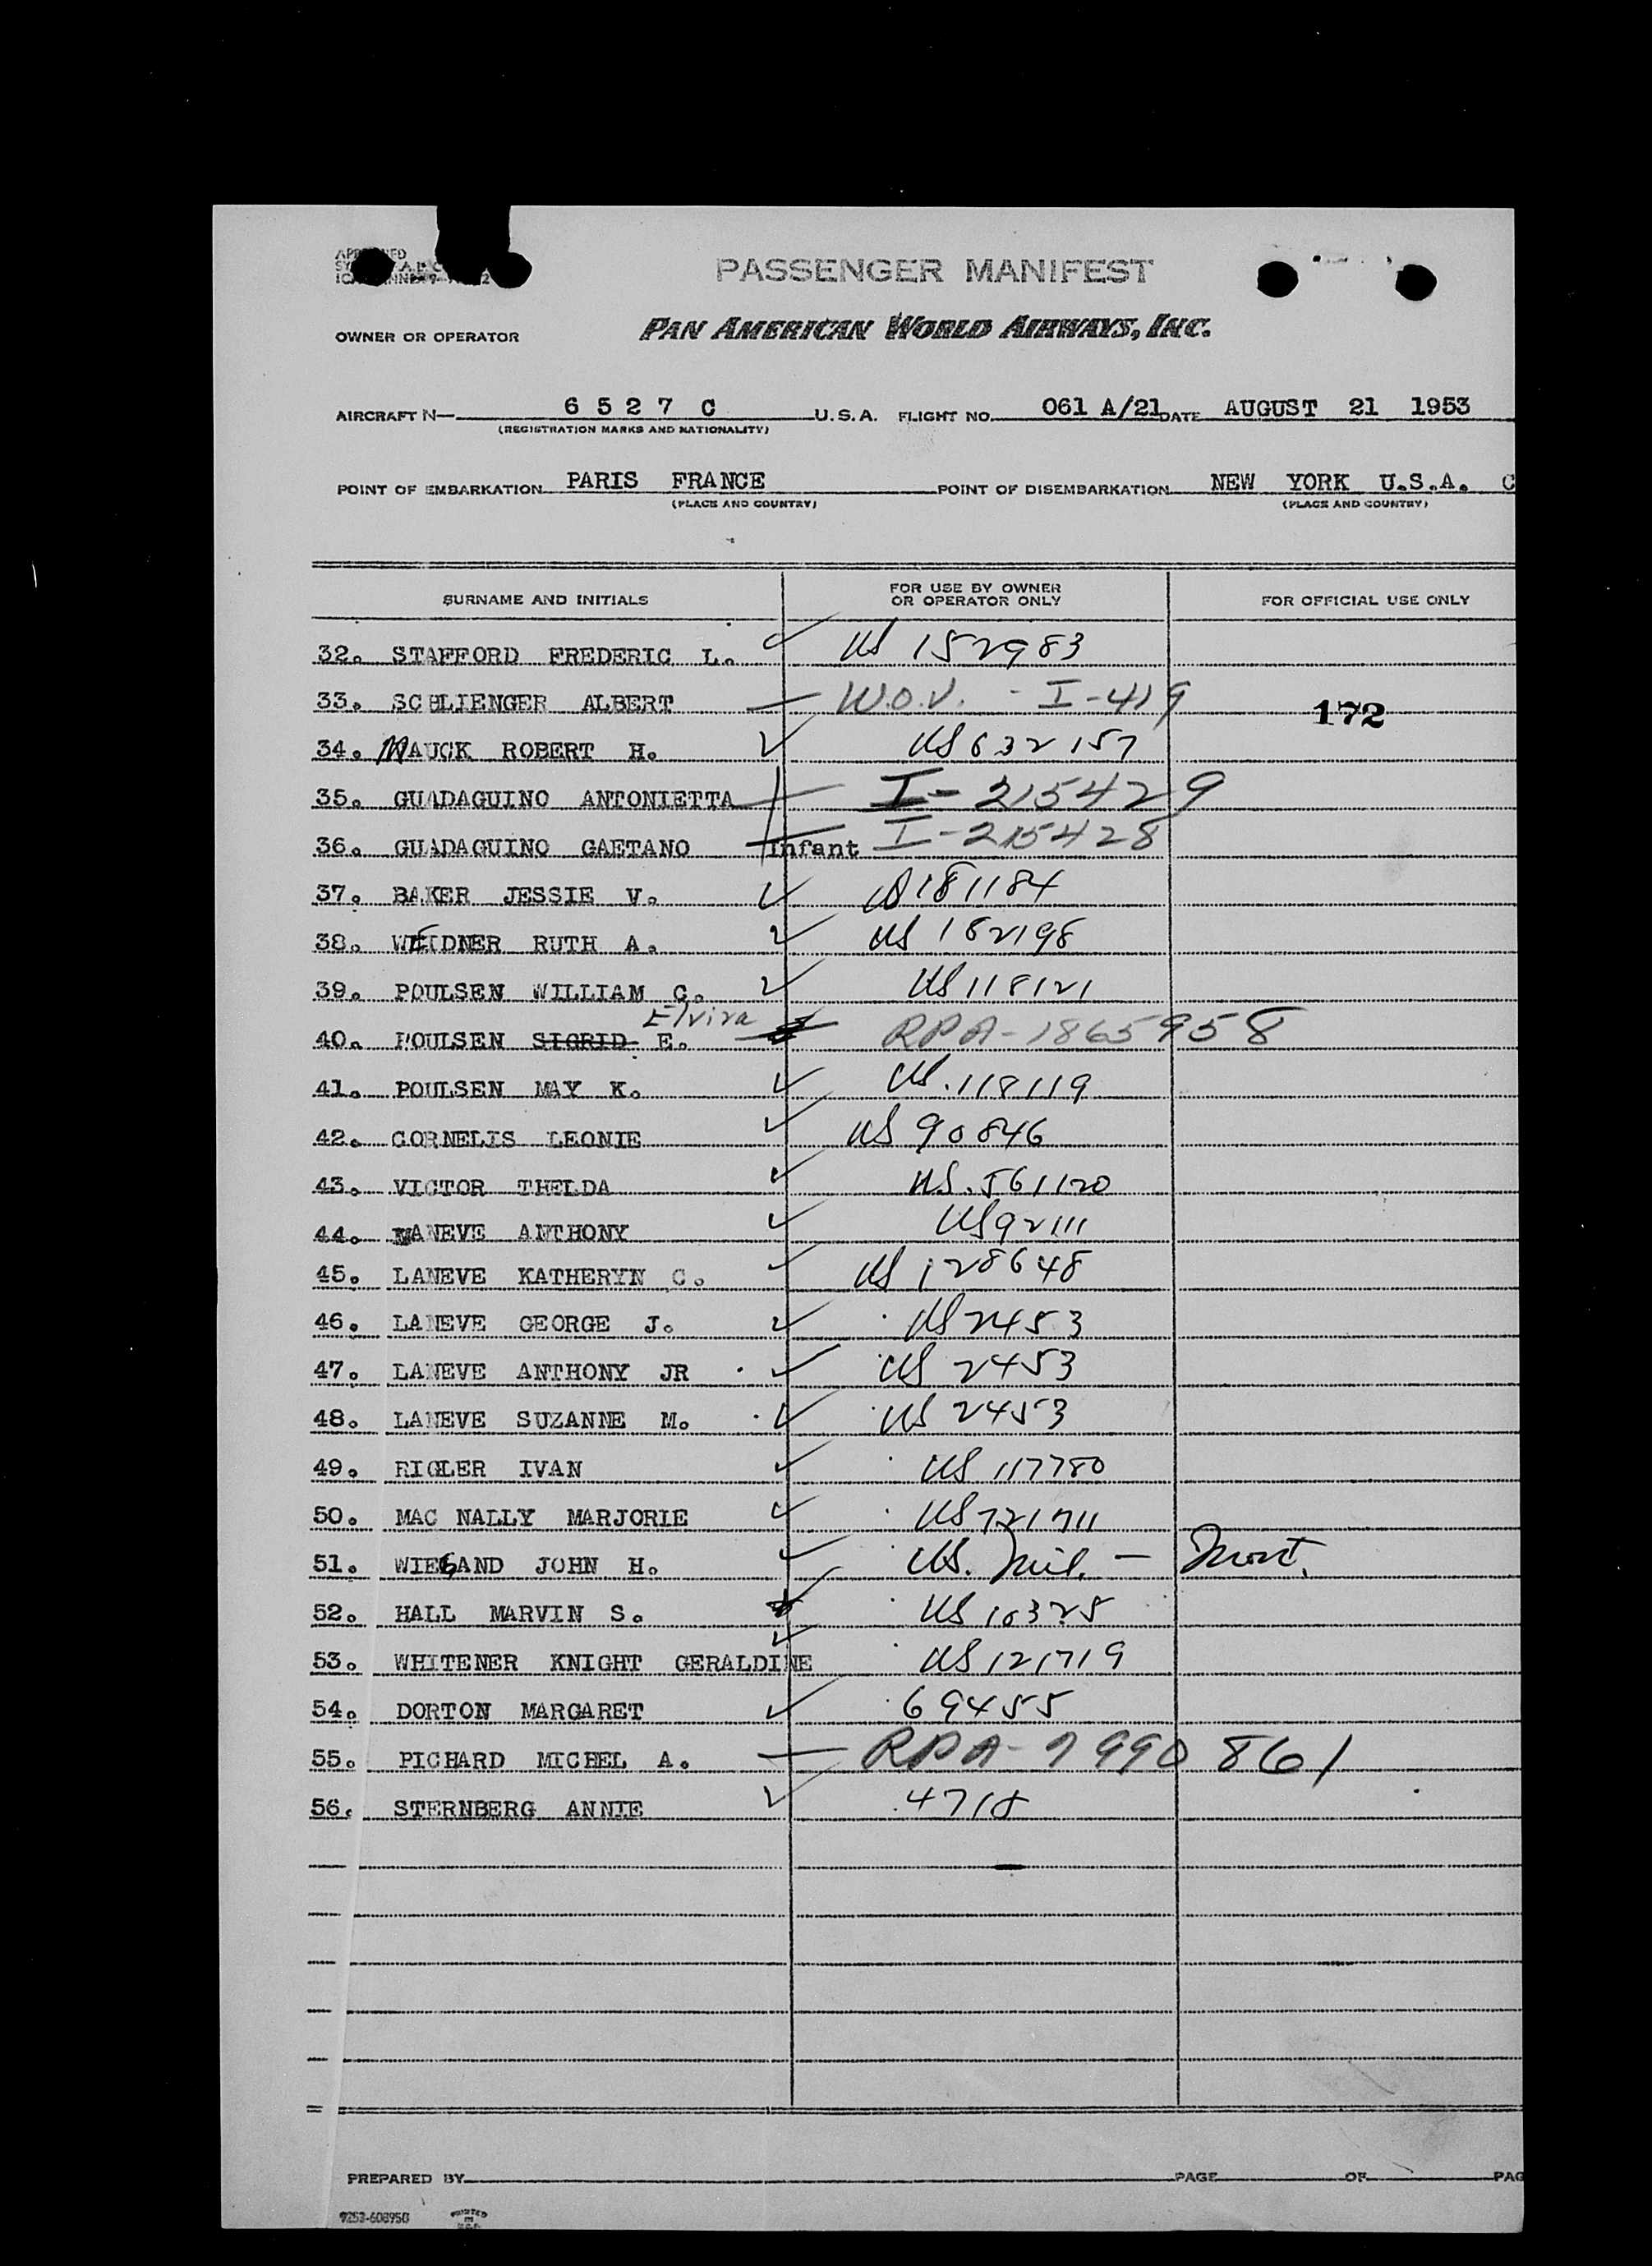 PASSENGER MANIFEST
OWNER OR OPERATOR PAN AMERICAN WORLD AIRWAYS, INC.
AIRCRAFT N— 6 5 2 7 C U.S.A. FLIGHT NO. 061 A/21 DATE AUGUST 21 1953
(REGISTRATION MARKS AND NATIONALITY)
POINT OF EMBARKATION PARIS FRANCE POINT OF DISEMBARKATION NEW YORK U.S.A.
(PLACE AND COUNTRY) (PLACE AND COUNTRY)
SURNAME AND INITIALS FOR USE BY OWNER OR OPERATOR ONLY FOR OFFICIAL USE ONLY
32. STAFFORD FREDERIC L. US 152983
33. SCHLIENGER ALBERT W.O.V. - I-419
172
34. MAUCK ROBERT H. US 632157
35. GUADAGUINO ANTONIETTA I-215429
36. GUADAGUINO GAETANO Infant I-215428
37. BAKER JESSIE V. US 181184
38. WEIDNER RUTH A. US 182198
39. POULSEN WILLIAM C. US 118121
Elvira
40. POULSEN SIGRID E. RPA-1865958
41. POULSEN MAY K. US. 118119
42. CORNELIS LEONIE US 90846
43. VICTOR THELDA US. 561120
44. LANEVE ANTHONY US 92111
45. LANEVE KATHERYN C. US 128648
46. LANEVE GEORGE J. US 2453
47. LANEVE ANTHONY JR US 2453
48. LANEVE SUZANNE M. US 2453
49. RIGLER IVAN US 117780
50. MAC NALLY MARJORIE US 721711
51. WIEGAND JOHN H. US. Mil. —
52. HALL MARVIN S. US 10325
53. WHITENER KNIGHT GERALDINE US 121719
54. DORTON MARGARET 69455
55. PICHARD MICHEL A. RPA-7990861
56. STERNBERG ANNIE 4718
PREPARED BY PAGE OF PAG
9253-608950 PRINTED IN